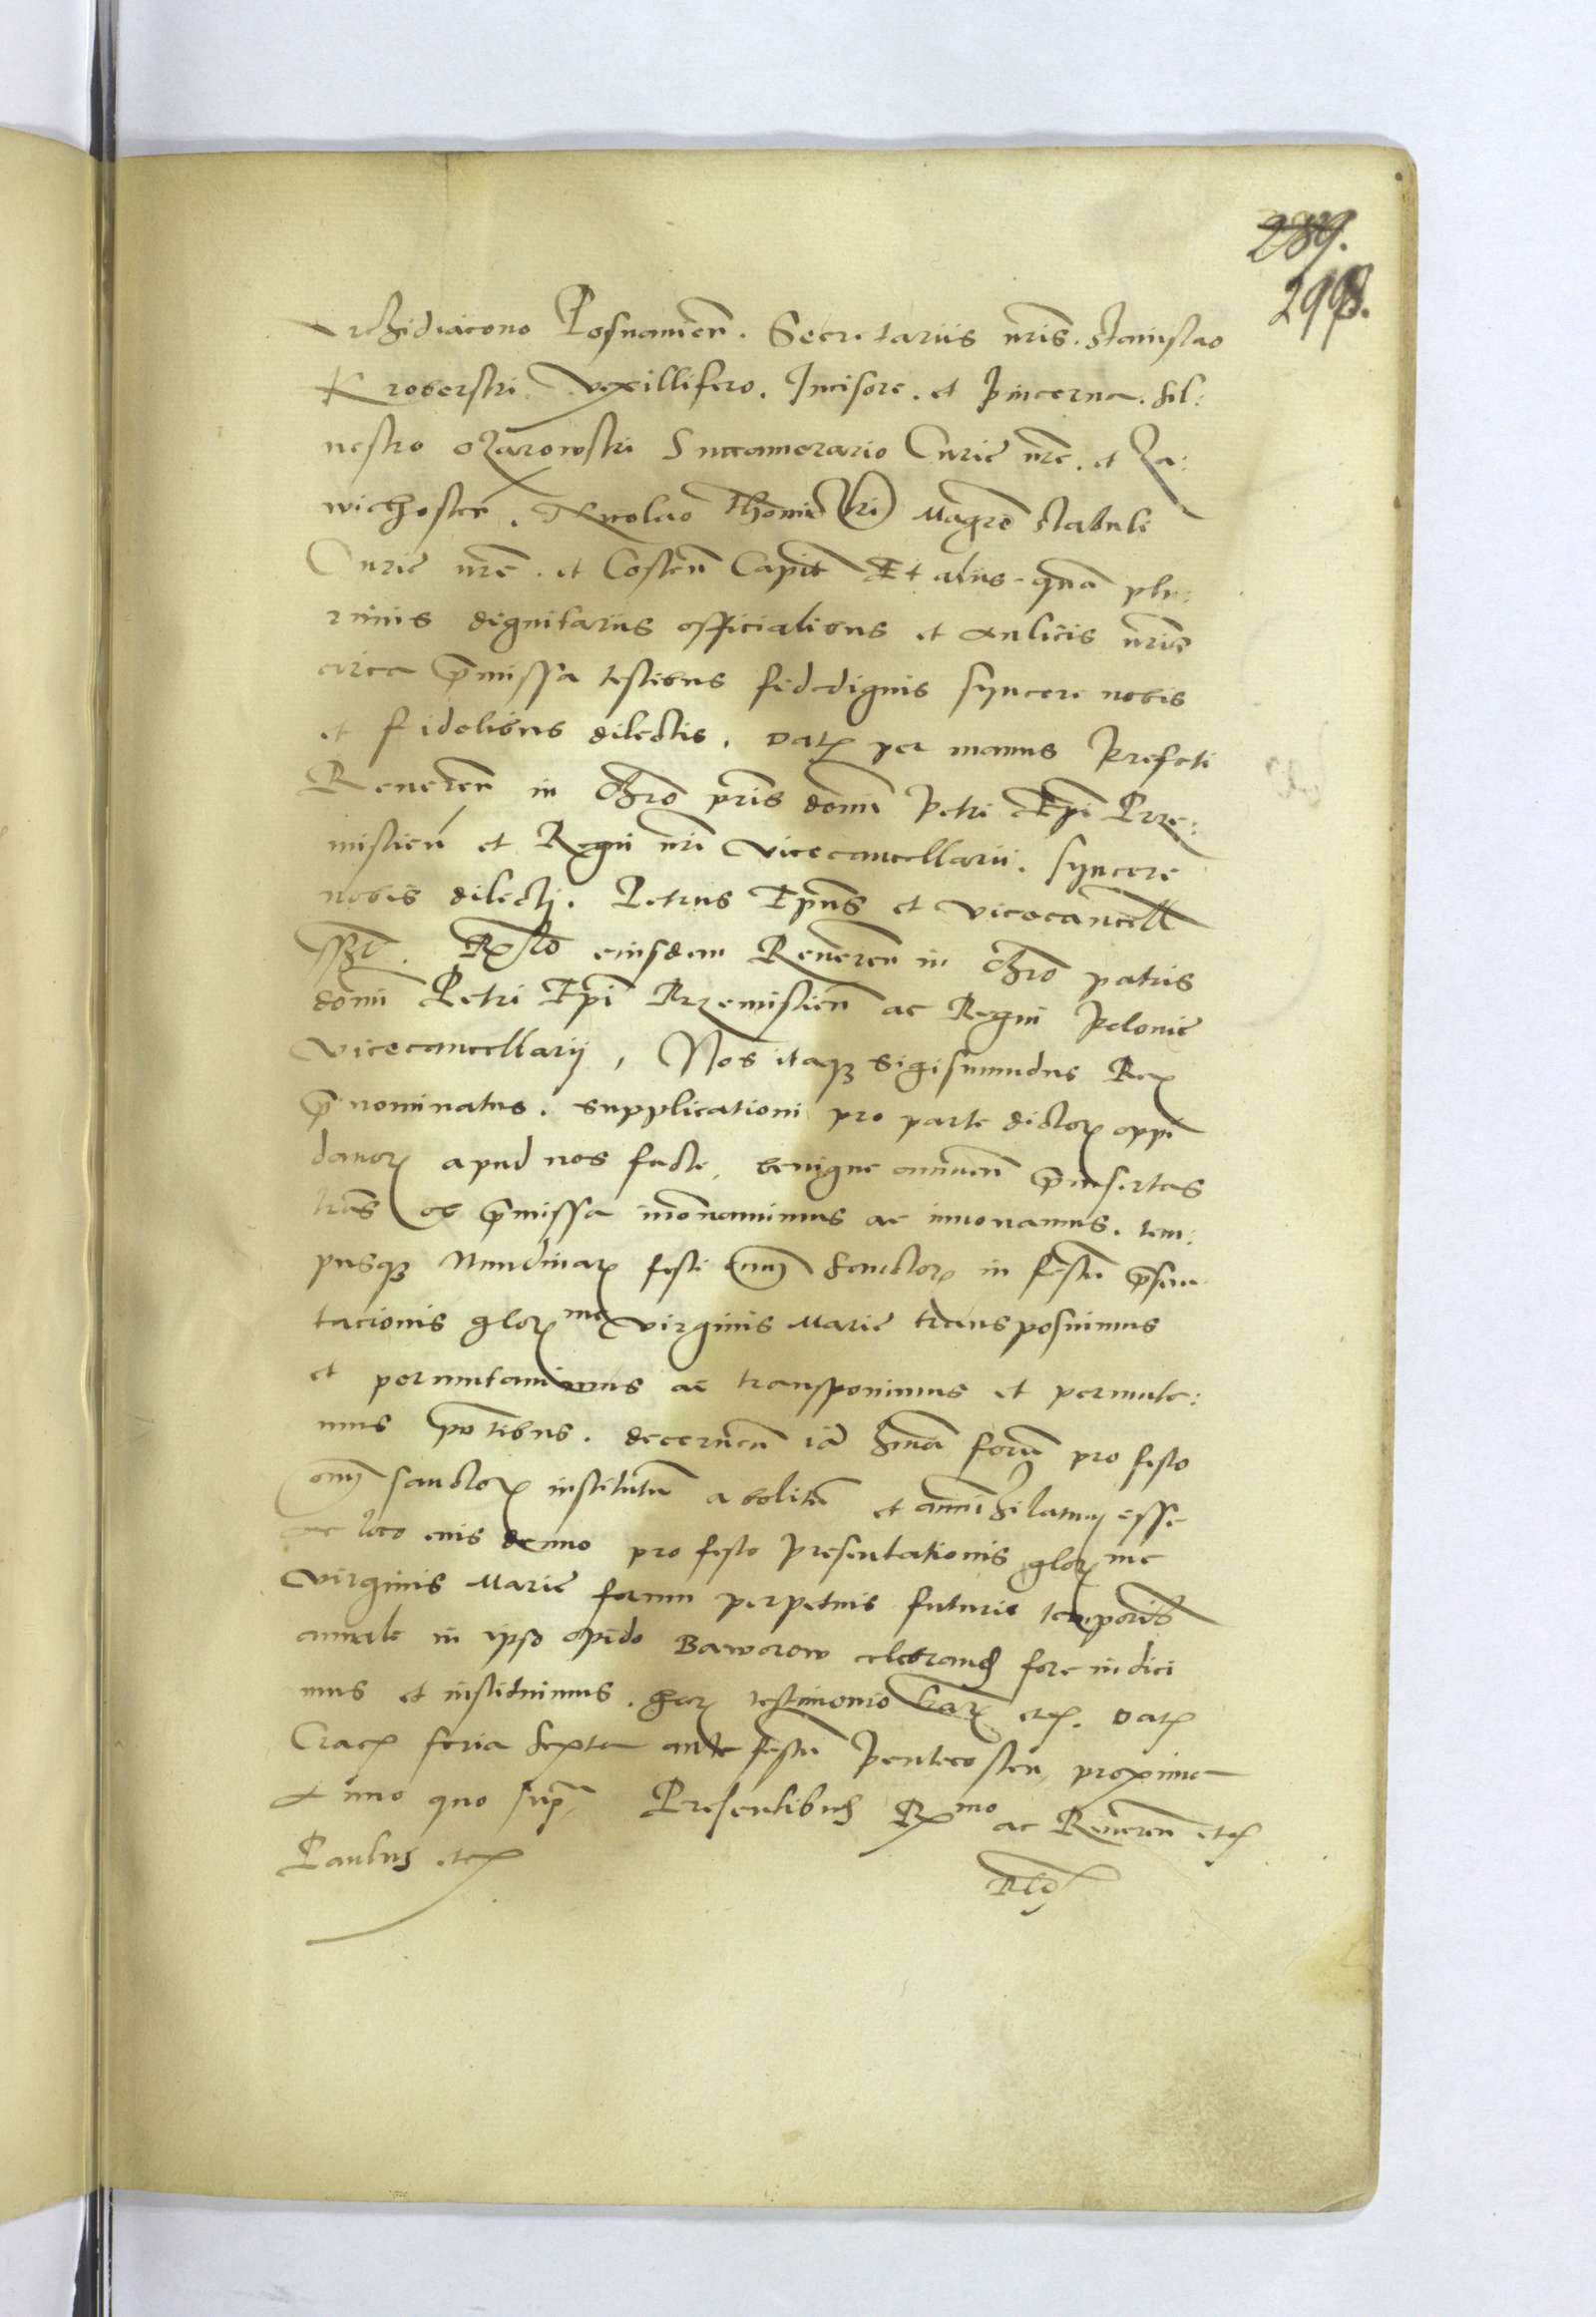 289.
298.
Archidiacono Posnanien̄. Secretariis nr̄is. Stanislao
Kroberski. Vexillifero. Incisore. et Pincerna. Sil:
vestro Ożarowski Succamerario Curie nr̄e. et Za:
wichosten̄. Nicolao Thomiczki Magr̄o stabuli
Curie nr̄e. et Costen̄ Capit̄ Et aliis quā plu:
rimis dignitariis officialibus et Aulicis nr̄is
circa p̄missa testibus fidedignis syncere nobis
et fidelibus dilectis. Dat̄ per manus Prefati
Reveren̄ in Chr̄o pr̄is domī Petri Ep̄i Prze:
mislien̄ et Regni nr̄i Vicecancellarii. syncere
nobis dilecti. Petrus Ep̄us et vicecancell̄
sszt̄. R̄lo eiusdem Reveren̄ in Chr̄o patris
domī Petri Ep̄i Przemislien̄ ac Regni Polonie
Vicecancellarij, Nos itaqꝫ Sigismundus Rex
p̄nominatus. supplicationi pro parte dictoꝝ oppi
danoꝝ apud nos facte, benigne annuen̄ p̄insertas
lr̄as ob p̄missa innovavimus ac innovamus. tem:
pusqꝫ Nundinaꝝ festi om̄ Sanctoꝝ in festū p̄sen
tacionis gloꝝme virginis Marie transposuimus
et permutavimus ac transponimus et permuta:
mus pn̄tibus. decernen̄ iā hm̄oi forū pro festo
om̄ sanctoꝝ institutū abolitū et annihilatum esse
ac loco eius denuo pro festo Presentationis gloꝝme
virginis Marie forum perpetuis futuris temporib̄
annale in ipso opido Baworow celebrand̄ fore indici
mus et instituimus. Haꝝ testimonio lr̄aꝝ etc. Dat̄
Crac̄ feria Sexta ante festū Pentecosten, proxima
Anno quo sup̄, Presentibus Rmo ac Reveren̄ etc
Paulus etc